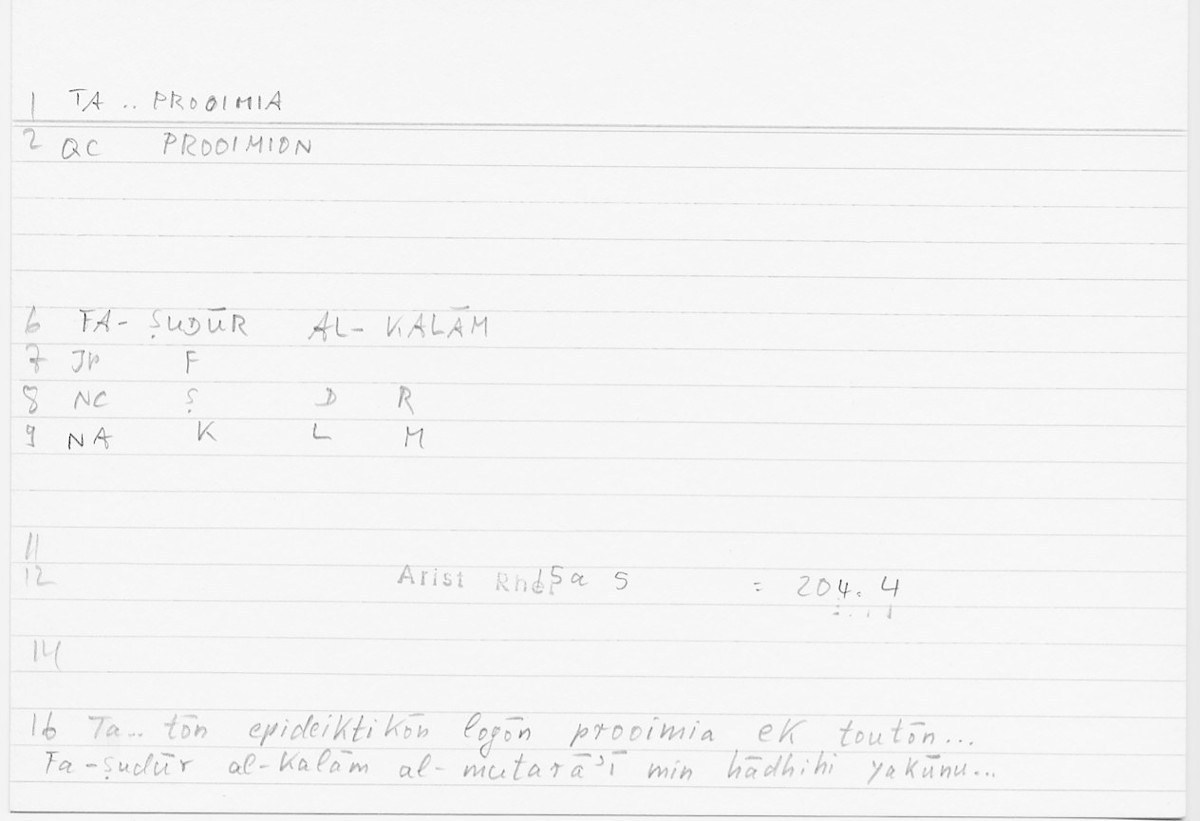 1 TA .. PROOIMIA
2 QC PROOIMION
6 FA- ṢUDŪR AL- KALĀM
7 JP F
8 NC Ṣ D R
9 NA K L M
11
12 Arist Rhet 15a 5 = 204. 4
14
16 Ta... tōn epideiktikōn logōn prooimia ek toutōn...
Fa-ṣudūr al-kalām al-mutarā'ī min hādhihi yakūnu...